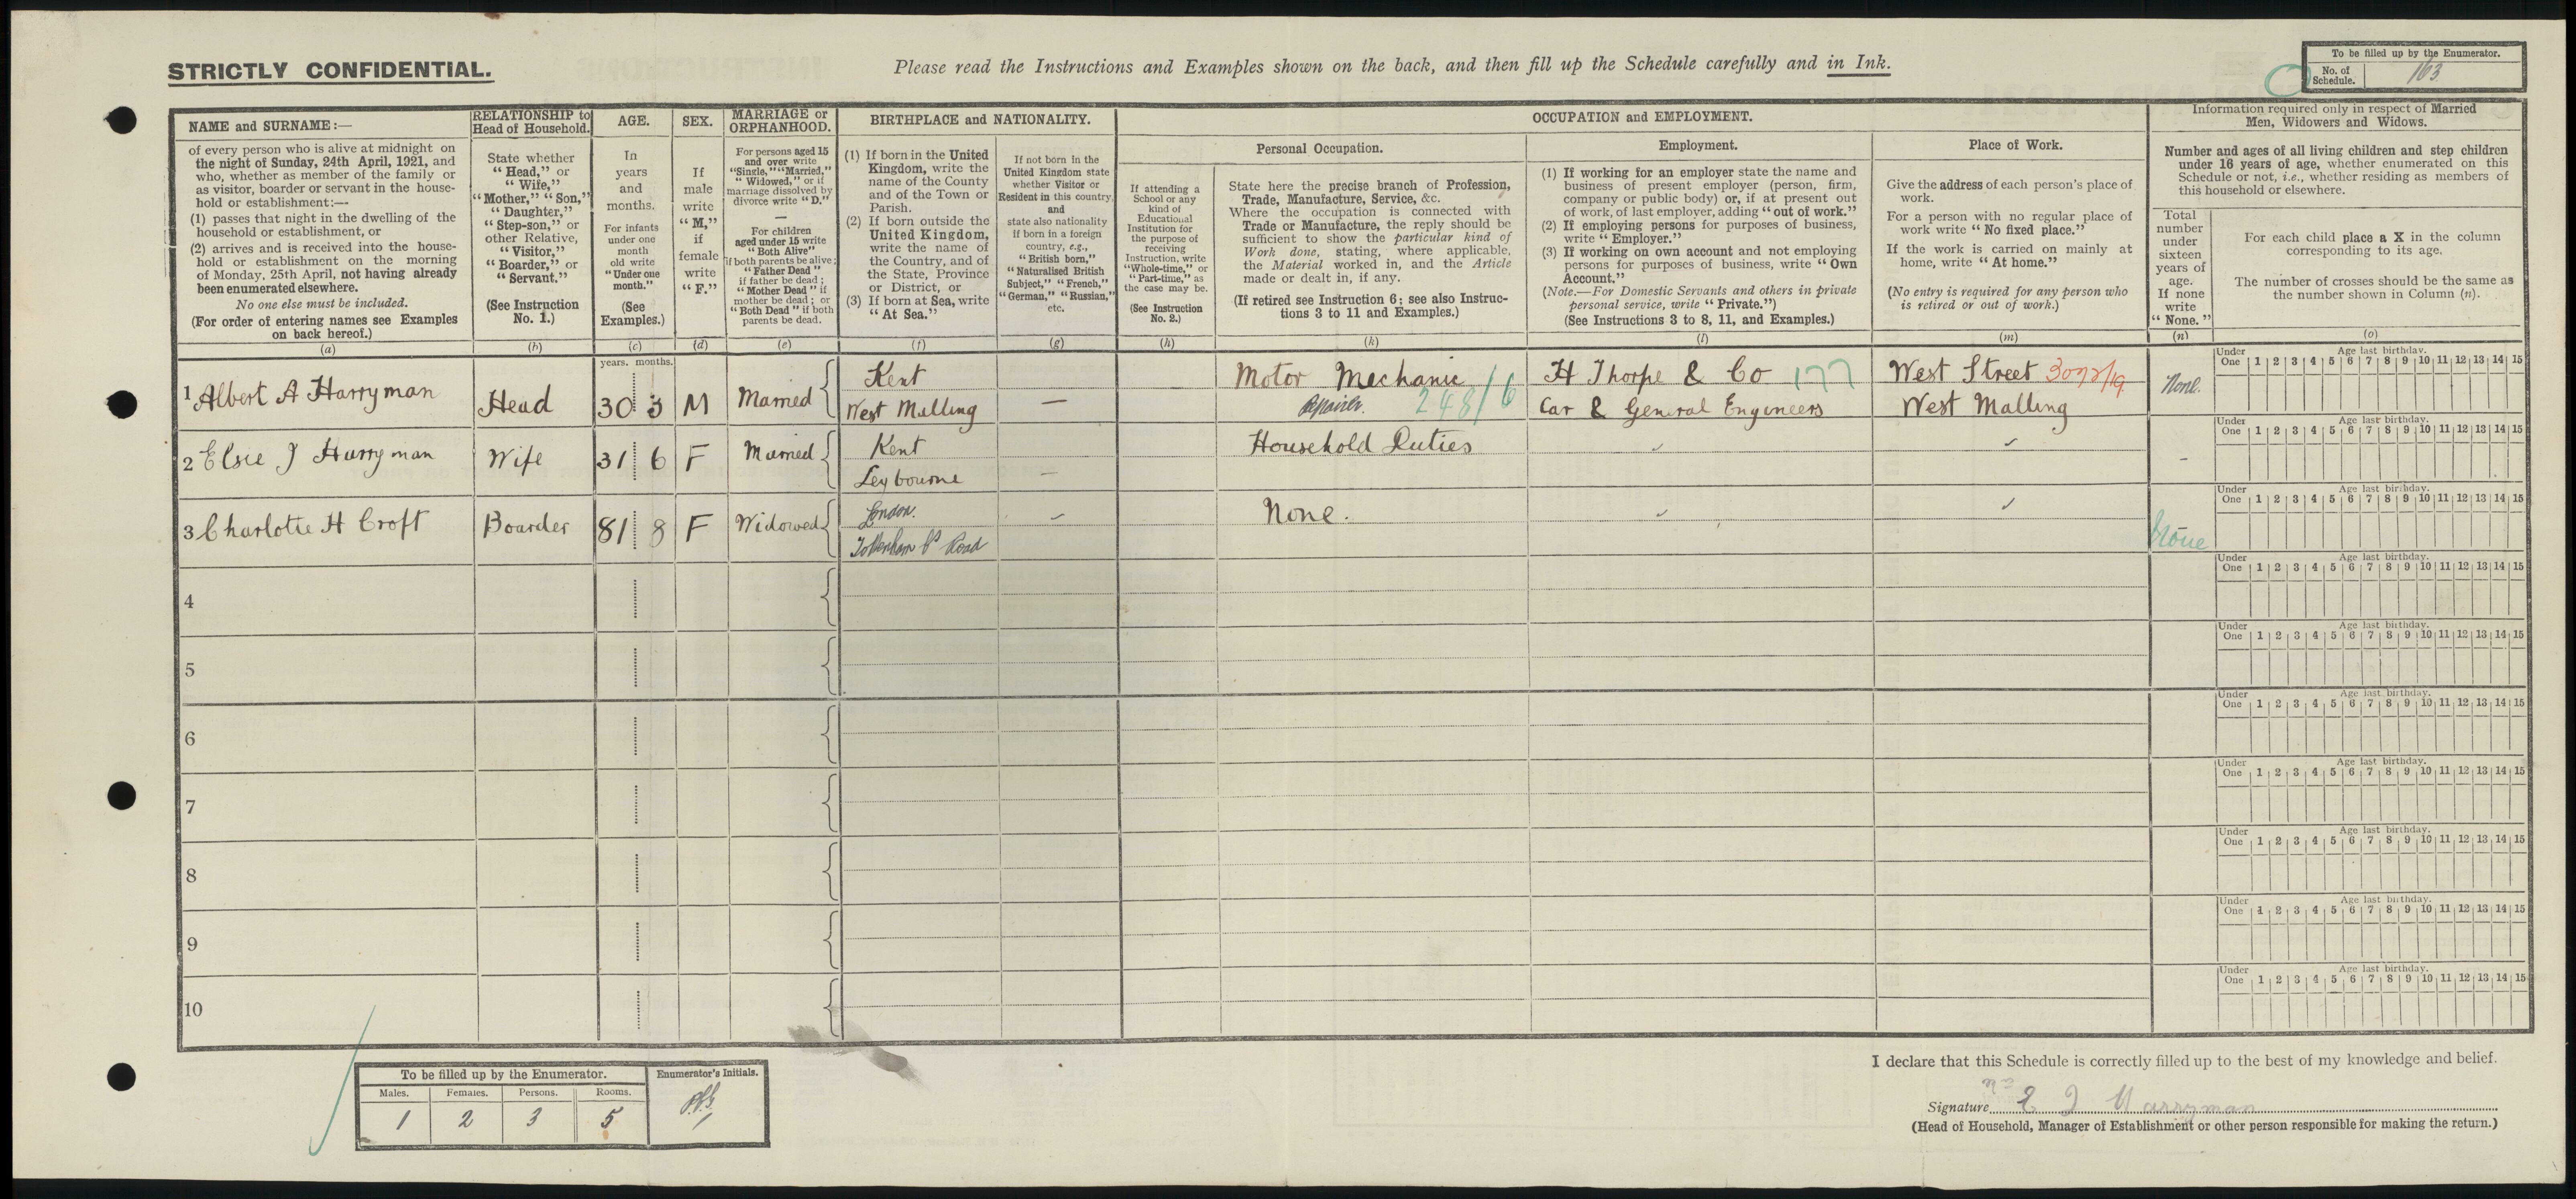 STRICTLY CONFIDENTIAL.
Please read the Instructions and Examples shown on the back, and then fill up the Schedule carefully and in Ink.
To be filled up by the Enumerator.
No. of Schedule. 163
NAME and SURNAME:—
of every person who is alive at midnight on
the night of Sunday, 24th April, 1921, and
who, whether as member of the family or
as visitor, boarder or servant in the house-
hold or establishment:—
(1) passes that night in the dwelling of the
household or establishment, or
(2) arrives and is received into the house-
hold or establishment on the morning
of Monday, 25th April, not having already
been enumerated elsewhere.
No one else must be included.
(For order of entering names see Examples
on back hereof.)
(a)
RELATIONSHIP to
Head of Household.
State whether
"Head," or
"Wife,"
"Mother," "Son,"
"Daughter,"
"Step-son," or
other Relative,
"Visitor,"
"Boarder," or
"Servant."
(See Instruction
No. 1.)
(b)
AGE.
In
years
and
months.
For infants
under one
month
old write
"Under one
month."
(See
Examples.)
(c)
SEX.
If
male
write
"M,"
if
female
write
"F."
(d)
MARRIAGE or
ORPHANHOOD.
For persons aged 15
and over write
"Single," "Married,"
"Widowed," or if
marriage dissolved by
divorce write "D."
—
For children
aged under 15 write
"Both Alive"
if both parents be alive;
"Father Dead"
if father be dead;
"Mother Dead" if
mother be dead; or
"Both Dead" if both
parents be dead.
(e)
BIRTHPLACE and NATIONALITY.
(1) If born in the United
Kingdom, write the
name of the County
and of the Town or
Parish.
(2) If born outside the
United Kingdom,
write the name of
the Country, and of
the State, Province
or District, or
(3) If born at Sea, write
"At Sea."
(f)
If not born in the
United Kingdom state
whether Visitor or
Resident in this country,
and
state also nationality
if born in a foreign
country, e.g.,
"British born,"
"Naturalised British
Subject," "French,"
"German," "Russian,"
etc.
(g)
OCCUPATION and EMPLOYMENT.
If attending a
School or any
kind of
Educational
Institution for
the purpose of
receiving
Instruction, write
"Whole-time," or
"Part-time," as
the case may be.
(See Instruction
No. 2.)
(h)
Personal Occupation.
State here the precise branch of Profession,
Trade, Manufacture, Service, &c.
Where the occupation is connected with
Trade or Manufacture, the reply should be
sufficient to show the particular kind of
Work done, stating, where applicable,
the Material worked in, and the Article
made or dealt in, if any.
(If retired see Instruction 6; see also Instruc-
tions 3 to 11 and Examples.)
(k)
Employment.
(1) If working for an employer state the name and
business of present employer (person, firm,
company or public body) or, if at present out
of work, of last employer, adding "out of work."
(2) If employing persons for purposes of business,
write "Employer."
(3) If working on own account and not employing
persons for purposes of business, write "Own
Account."
(Note.—For Domestic Servants and others in private
personal service, write "Private.")
(See Instructions 3 to 8, 11, and Examples.)
(l)
Place of Work.
Give the address of each person's place of
work.
For a person with no regular place of
work write "No fixed place."
If the work is carried on mainly at
home, write "At home."
(No entry is required for any person who
is retired or out of work.)
(m)
Information required only in respect of Married
Men, Widowers and Widows.
Number and ages of all living children and step children
under 16 years of age, whether enumerated on this
Schedule or not, i.e., whether residing as members of
this household or elsewhere.
Total
number
under
sixteen
years of
age.
If none
write
"None."
(n)
For each child place a X in the column
corresponding to its age.
The number of crosses should be the same as
the number shown in Column (n).
(o)
years. months.
1 Albert A Harryman Head 30 3 M Married Kent
West Malling — Motor Mechanic 248/6
Repairer. H Thorpe & Co 177
Car & General Engineers West Street 3072/19
West Malling None.
Under One 1 2 3 4 5 6 7 8 9 10 11 12 13 14 15
Age last birthday.
2 Elsie J Harryman Wife 31 6 F Married Kent
Leybourne — Household Duties –
Under One 1 2 3 4 5 6 7 8 9 10 11 12 13 14 15
Age last birthday.
3 Charlotte H Croft Boarder 81 8 F Widowed London.
Tottenham Ct Road None. None
Under One 1 2 3 4 5 6 7 8 9 10 11 12 13 14 15
Age last birthday.
4
Under One 1 2 3 4 5 6 7 8 9 10 11 12 13 14 15
Age last birthday.
5
Under One 1 2 3 4 5 6 7 8 9 10 11 12 13 14 15
Age last birthday.
6
Under One 1 2 3 4 5 6 7 8 9 10 11 12 13 14 15
Age last birthday.
7
Under One 1 2 3 4 5 6 7 8 9 10 11 12 13 14 15
Age last birthday.
8
Under One 1 2 3 4 5 6 7 8 9 10 11 12 13 14 15
Age last birthday.
9
Under One 1 2 3 4 5 6 7 8 9 10 11 12 13 14 15
Age last birthday.
10
Under One 1 2 3 4 5 6 7 8 9 10 11 12 13 14 15
Age last birthday.
To be filled up by the Enumerator.
Males. Females. Persons. Rooms.
1 2 3 5
Enumerator's Initials.
I declare that this Schedule is correctly filled up to the best of my knowledge and belief.
Signature E J Harryman
(Head of Household, Manager of Establishment or other person responsible for making the return.)